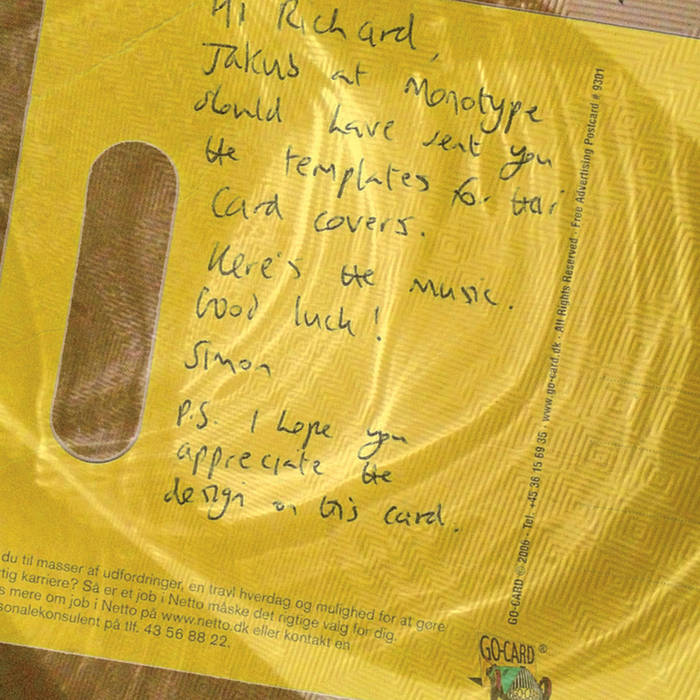 Hi Richard,
Jakub at Monotype
should have sent you
the templates for their
Card covers.
Here's the music.
Good luck!
Simon
P.S. I hope you
appreciate the
design on this card.
du til masser af udfordringer, en travl hverdag og mulighed for at gøre
tig karriere? Så er et job i Netto måske det rigtige valg for dig.
s mere om job i Netto på www.netto.dk eller kontakt en
sonalekonsulent på tlf. 43 56 88 22.
GO-CARD © 2006 · Tel. +45 36 15 69 35 · www.go-card.dk · All Rights Reserved · Free Advertising Postcard # 9301
GO-CARD ®